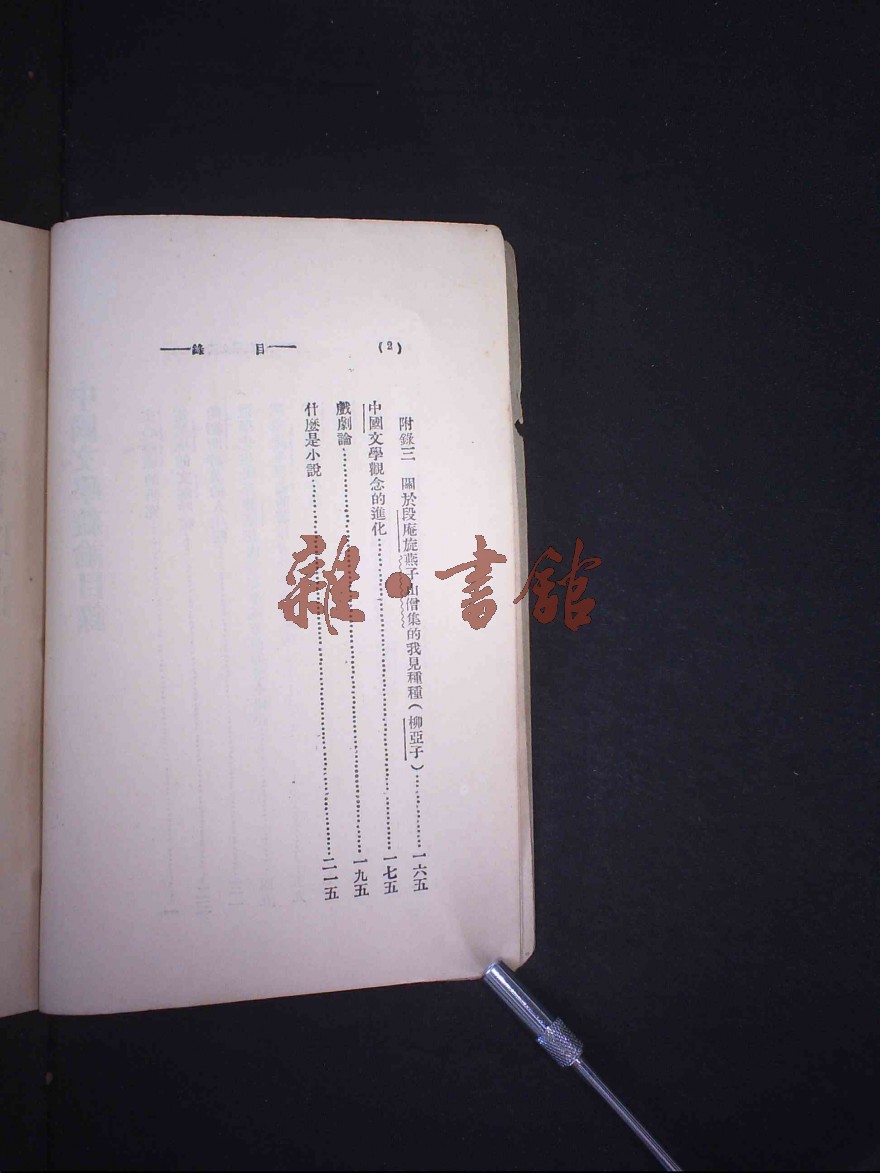 (2)
目錄
附錄三 關於段庵旋燕子山僧集的我見種種(柳亞子)…………一六五
中國文學觀念的進化…………一七五
戲劇論…………一九五
什麼是小說…………二一五
雜·書館